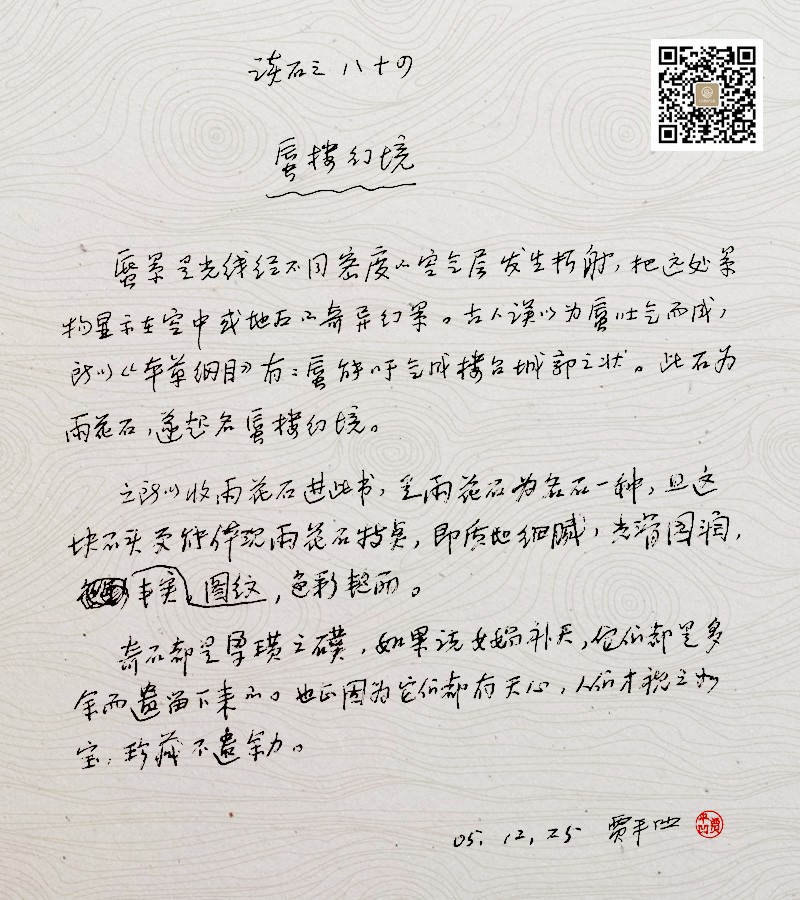 读石之八十四
蜃楼幻境
蜃景是光线经不同密度的空气层发生折射，把远处景
物显示在空中或地面的奇异幻景。古人误以为蜃吐气而成，
所以《本草纲目》有：蜃能吁气成楼台城郭之状。此石为
雨花石，遂起名蜃楼幻境。
之所以收雨花石进此书，是雨花石为名石一种，且这
块石头更能体现雨花石特点，即质地细腻，光滑圆润，
丰实图纹，色彩艳丽。
奇石都是浑璞之石，如果说女娲补天，它们都是多
余而遗留下来的。也正因为它们都有天心，人们才视之如
宝，珍藏不遗余力。
05.12.25 贾平凹
贾平凹